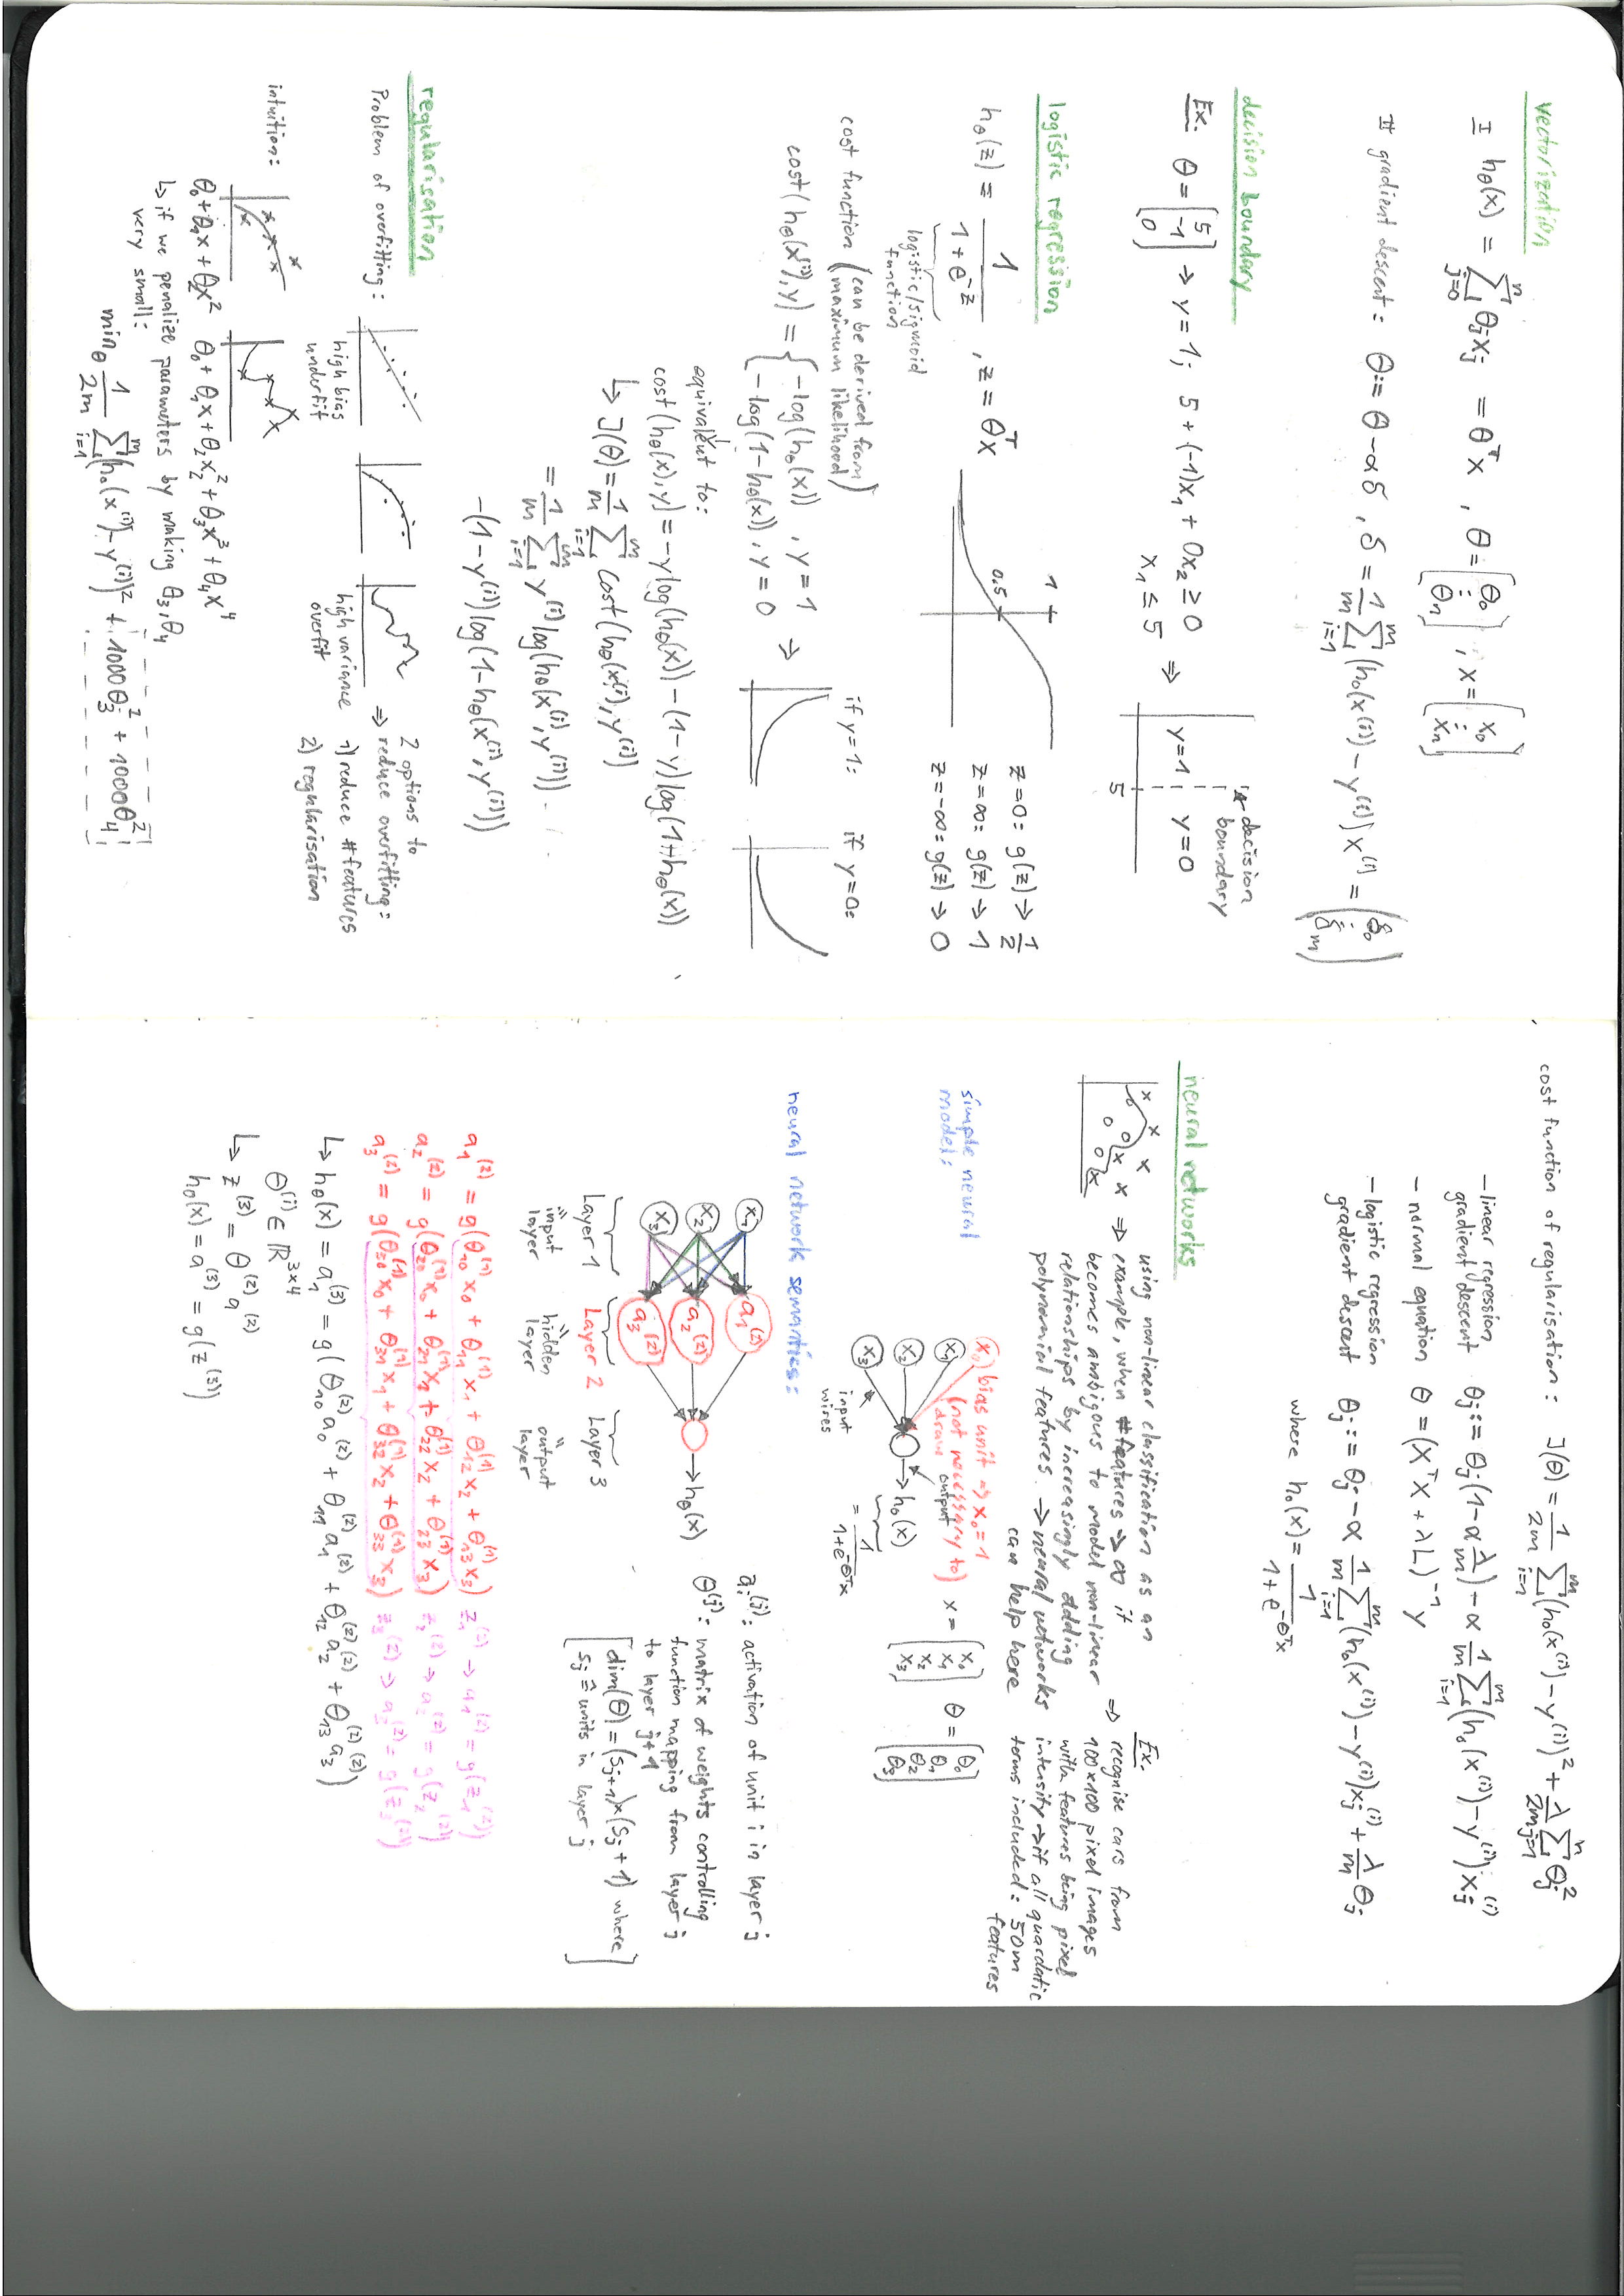 vectorization
I hθ(x) = Σ_{j=0}^{n} θj xj = θ^T x , θ = [θ0 : θn] ; x = [x0 : xn]
II gradient descent: θ := θ - αδ , δ = 1/m Σ_{i=1}^{m} (hθ(x^(i)) - y^(i)) x^(i) = (δ0 : δm)
decision boundary
decision
boundary
Ex. θ = [5 -1 0] → y = 1; 5 + (-1)x1 + 0x2 ≥ 0 ⇒ y=1 y=0
x1 ≤ 5
5
logistic regression
hθ(z) = 1/(1+e^-z) , z = θ^T x
logistic/sigmoid
function
1
0.5
z=0: g(z) → 1/2
z=∞: g(z) → 1
z=-∞: g(z) → 0
cost function (can be derived from
maximum likelihood)
if y=1: if y=0:
cost(hθ(x^(i)),y) = { -log(hθ(x)) , y = 1 →
-log(1-hθ(x)) , y = 0
equivalent to:
cost(hθ(x),y) = -y log(hθ(x)) - (1-y) log(1-hθ(x))
↳ J(θ) = 1/m Σ_{i=1}^{m} cost(hθ(x^(i), y^(i))
= 1/m Σ_{i=1}^{m} y^(i) log(hθ(x^(i), y^(i)))
-(1-y^(i)) log(1-hθ(x^(i), y^(i)))
regularisation
Problem of overfitting:
high bias
underfit
high variance
overfit
⇒ 2 options to
reduce overfitting:
1) reduce #features
2) regularisation
intuition:
θ0+θ1x+θ2x^2 θ0+θ1x+θ2x2^2+θ3x^3+θ4x^4
↳ if we penalize parameters by making θ3,θ4
very small:
minθ 1/2m Σ_{i=1}^{m} (hθ(x^(i)) - y^(i))^2 + 1000θ3^2 + 1000θ4^2
cost function of regularisation: J(θ) = 1/2m Σ_{i=1}^{m} (hθ(x^(i)) - y^(i))^2 + λ/2m Σ_{j=1}^{n} θj^2
- linear regression
gradient descent θj := θj(1-α λ/m) - α 1/m Σ_{i=1}^{m} (hθ(x^(i)) - y^(i)) xj^(i)
- normal equation θ = (X^T X + λL)^-1 y
- logistic regression
gradient descent θj := θj - α 1/m Σ_{i=1}^{m} (hθ(x^(i)) - y^(i)) xj^(i) + λ/m θj
where hθ(x) = 1/(1+e^-θ^T x)
neural networks
⇒ using non-linear classification as an
example, when #features → ∞ it
becomes ambigous to model non-linear
relationships by increasingly adding
polynomial features. → neural networks
can help here
⇒ Ex.
recognise cars from
100x100 pixel images
with features being pixel
intensity → if all quardatic
terms included: 50m
features
simple neural
model:
x0 bias unit ⇒ x0 = 1
(not necessary to
draw)
x1
x2
x3
output
hθ(x)
= 1/(1+e^-θ^T x)
input
wires
x = [x0 x1 x2 x3] θ = [θ0 θ1 θ2 θ3]
neural network semantics:
x1 a1^(2)
x2 a2^(2) → hθ(x)
x3 a3^(2)
Layer 1 Layer 2 Layer 3
input
layer
hidden
layer
output
layer
ai^(j): activation of unit i in layer j
θ^(j): matrix of weights controlling
function mapping from layer j
to layer j+1
[dim(θ) = (sj+1)×(sj + 1) where
sj ≙ units in layer j]
a1^(2) = g(θ10^(1)x0 + θ11^(1)x1 + θ12^(1)x2 + θ13^(1)x3) z1^(2) → a1^(2) = g(z1^(2))
a2^(2) = g(θ20^(1)x0 + θ21^(1)x1 + θ22^(1)x2 + θ23^(1)x3) z2^(2) → a2^(2) = g(z2^(2))
a3^(2) = g(θ30^(1)x0 + θ31^(1)x1 + θ32^(1)x2 + θ33^(1)x3) z3^(2) → a3^(2) = g(z3^(2))
↳ hθ(x) = a1^(3) = g(θ10^(2)a0^(2) + θ11^(2)a1^(2) + θ12^(2)a2^(2) + θ13^(2)a3^(2))
θ^(i) ∈ ℝ^3×4
↳ z^(3) = θ^(2)a^(2)
hθ(x) = a^(3) = g(z^(3))